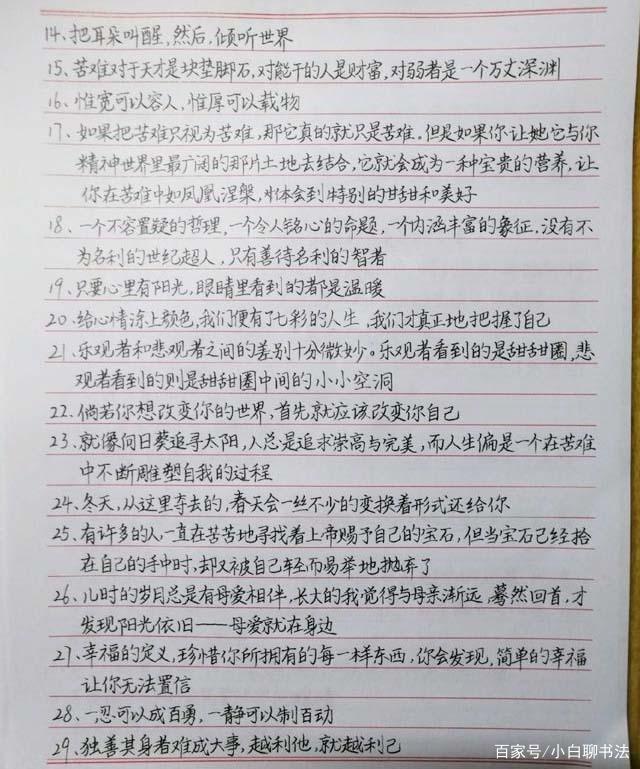 14、把耳朵叫醒,然后,倾听世界
15、苦难对于天才是块垫脚石,对能干的人是财富,对弱者是一个万丈深渊
16、惟宽可以容人,惟厚可以载物
17、如果把苦难只视为苦难,那它真的就只是苦难。但是如果你让她它与你
精神世界里最广阔的那片土地去结合,它就会成为一种宝贵的营养,让
你在苦难中如凤凰涅槃,体会到特别的甘甜和美好
18、一个不容置疑的哲理,一个令人铭心的命题,一个内涵丰富的象征,没有不
为名利的世纪超人,只有善待名利的智者
19、只要心里有阳光,眼睛里看到的都是温暖
20、给心情涂上颜色,我们便有了七彩的人生,我们才真正地把握了自己
21、乐观者和悲观者之间的差别十分微妙。乐观者看到的是甜甜圈,悲
观者看到的则是甜甜圈中间的小小空洞
22、倘若你想改变你的世界,首先就应该改变你自己
23、就像向日葵追寻太阳,人总是追求崇高与完美,而人生偏是一个在苦难
中不断雕塑自我的过程
24、冬天,从这里夺去的,春天会一丝不少的变换着形式还给你
25、有许多的人一直在苦苦地寻找着上帝赐予自己的宝石,但当宝石已经拾
在自己的手中时,却又被自己轻而易举地抛弃了
26、儿时的岁月总是有母爱相伴,长大的我觉得与母亲渐远,蓦然回首,才
发现阳光依旧——母爱就在身边
27、幸福的定义,珍惜你所拥有的每一样东西,你会发现,简单的幸福
让你无法置信
28、一忍可以成百勇,一静可以制百动
29、独善其身者难成大事,越利他,就越利己
百家号/小白聊书法